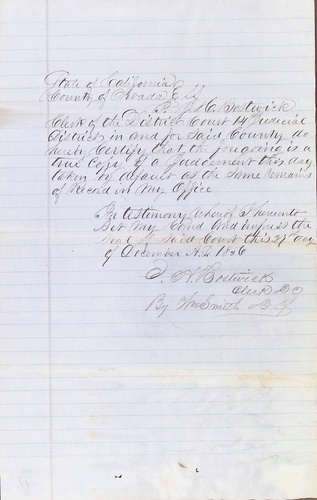 State of California
County of Nevada
H. Bostwick
Clerk of the District Court 14 Judicial
District in and for Said County do
hereby Certify that the foregoing is a
true Copy of a Judgement this day
taken by default as the Same Remains
of Record in My Office
In testimony Whereof I hereunto
Set My Hand And impress the
Seal of Said Court this 27 day
of December A.D. 18
Bostwick
Clerk
By Wm Smith D.